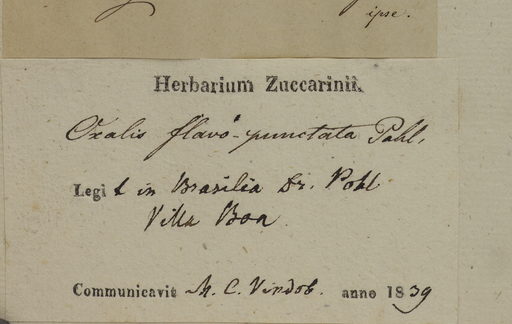 ipse.
Herbarium Zuccarinii.
Oxalis flavo-punctata Pohl.
Legit in Brasilia Dr. Pohl
Villa Boa
Communicavit M. C. Vindob. anno 1839